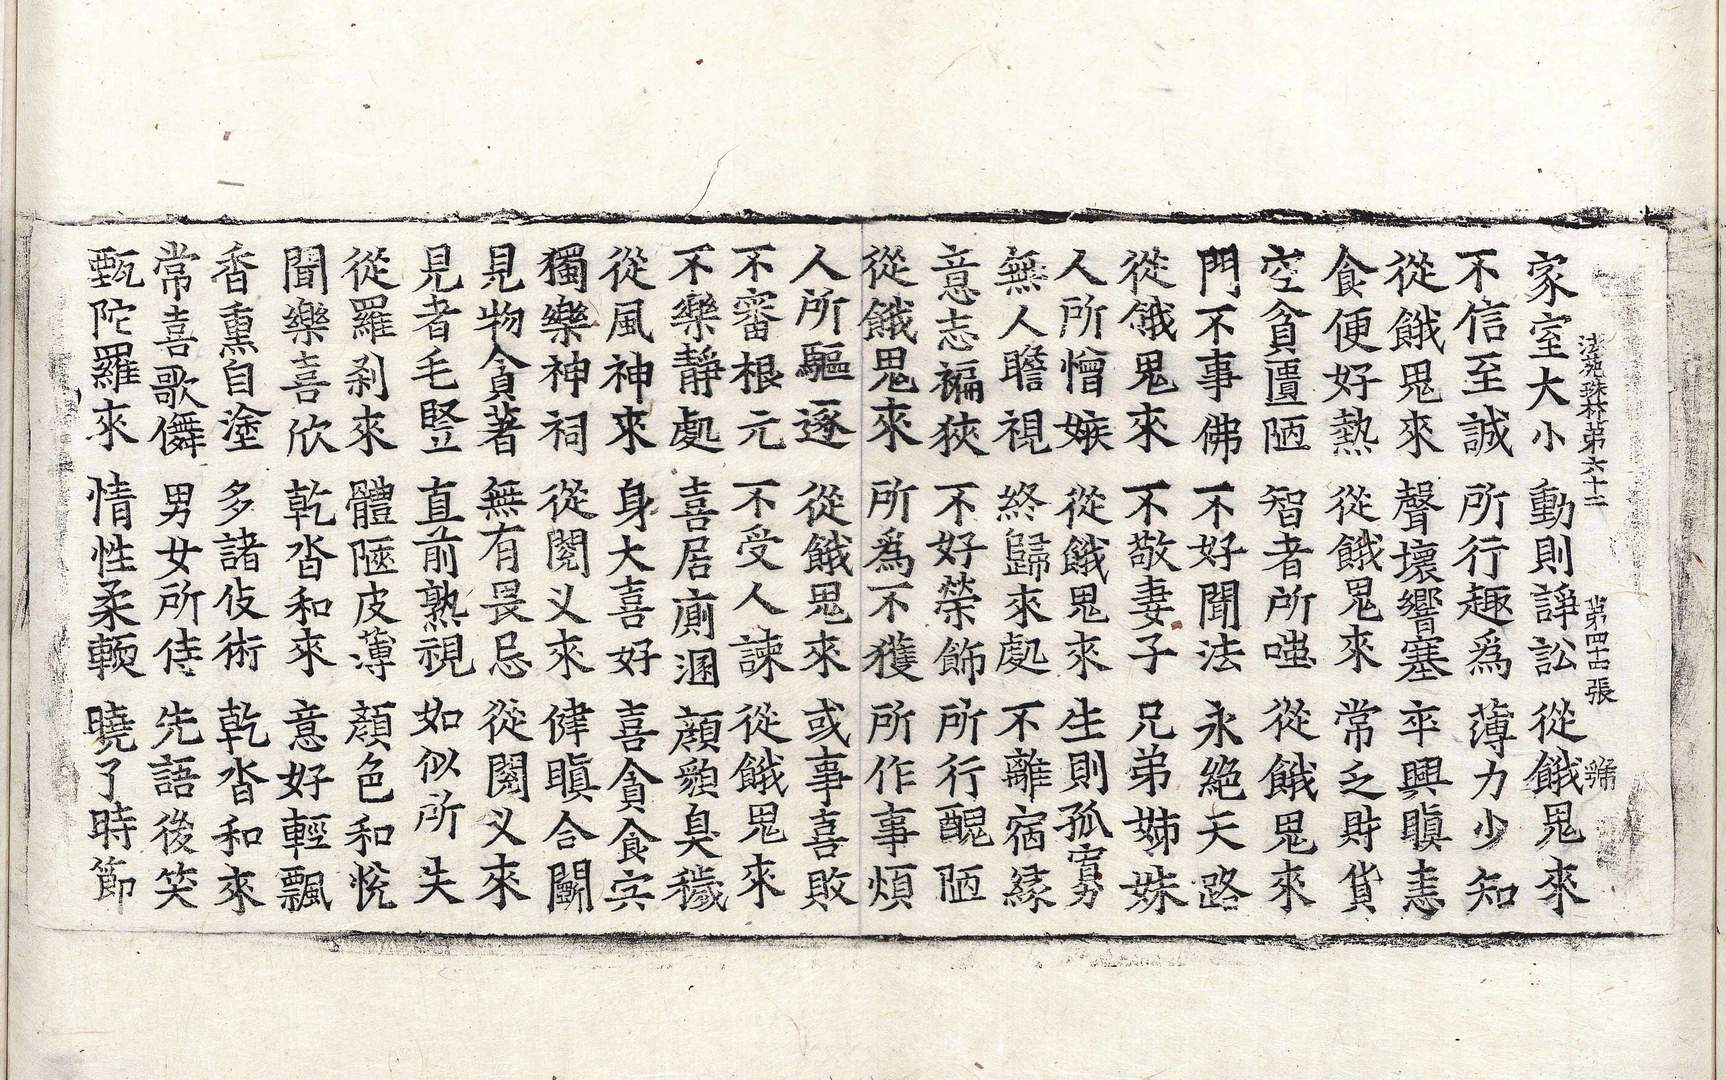 法苑珠林第六十二 第四十二張 㢱
家室大小 動則諍訟 從餓鬼來
不信至誠 所行趣爲 薄力少知
從餓鬼來 聲壞響塞 卒興瞋恚
食便好熱 從餓鬼來 常乏財貨
空貧匱陋 智者所嗤 從餓鬼來
門不事佛 不好聞法 永絕天路
從餓鬼來 不敬妻子 兄弟姊妹
人所憎嫉 從餓鬼來 生則孤寡
無人瞻視 終歸來處 不離宿緣
意志褊狹 不好榮飾 所行醜陋
從餓鬼來 所爲不獲 所作事煩
人所驅逐 從餓鬼來 或事喜敗
不審根元 不受人諫 從餓鬼來
不樂靜處 喜居廁溷 顔貌臭穢
從風神來 身大喜好 喜貪食宍
獨樂神祠 從閱叉來 健瞋合鬬
見物貪著 無有畏忌 從閱叉來
見者毛竪 直前熟視 如似所失
從羅剎來 體陋皮薄 顔色和悅
聞樂喜欣 乾沓和來 意好輕飄
香熏自塗 多諸伎術 乾沓和來
常喜歌儛 男女所侍 先語後笑
甄陀羅來 情性柔輭 曉了時節